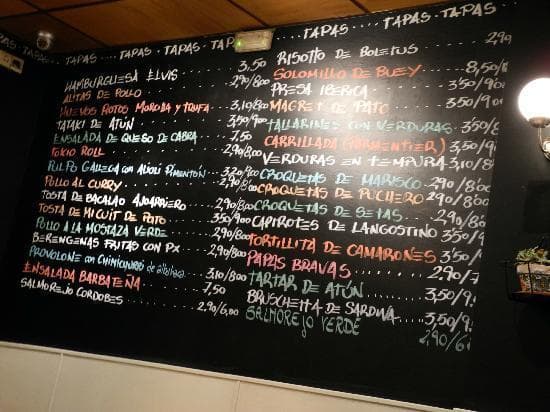 TAPAS....TAPAS..TAPAS..TAPAS....TAPAS..TAPAS..TAPAS
HAMBURGUESA ELVIS 3,50
ALITAS DE POLLO 2,90/8,00
HUEVOS ROTOS MORCILLA Y TRUFA 3,10/8,00
TATAKI DE ATÚN 3,50/9,00
ENSALADA DE QUESO DE CABRA 7,50
TOKIO ROLL 2,90/8,00
PULPO GALLEGA CON ALIOLI PIMENTÓN 3,20/9,00
POLLO AL CURRY 2,90/8,00
TOSTA DE BACALAO AJOARRIERO
TOSTA DE MICUIT DE PATO 3,50/9,00
POLLO A LA MOSTAZA VERDE 2,90/8,00
BERENGENAS FRITAS CON PX 2,90/8,00
PROVOLONE CON CHIMICHURRI DE 3,10/8,00
ENSALADA BARBATEÑA 7,50
SALMOREJO CORDOBES 2,90/6,00
RISOTTO DE BOLETUS 2,90
SOLOMILLO DE BUEY 8,50/8
PRESA IBERICA 3,50/90
MAGRET DE PATO 3,50/9
TALLARINES CON VERDURAS 3,50/8
CARRILLADA (PARMENTIER) 3,50/9
VERDURAS EN TEMPURA 3,10/8
CROQUETAS DE MARISCO 2,90/8,00
CROQUETAS DE PUCHERO 2,90/8
CROQUETAS DE SETAS 2,90/8
CAPIROTES DE LANGOSTINO 3,50/
TORTILLITA DE CAMARONES 3,50/
PAPAS BRAVAS 2,90/7
TARTAR DE ATÚN 3,50/9
BRUSCHETTA DE SARDINA 3,50/9
SALMOREJO VERDE 2,90/6